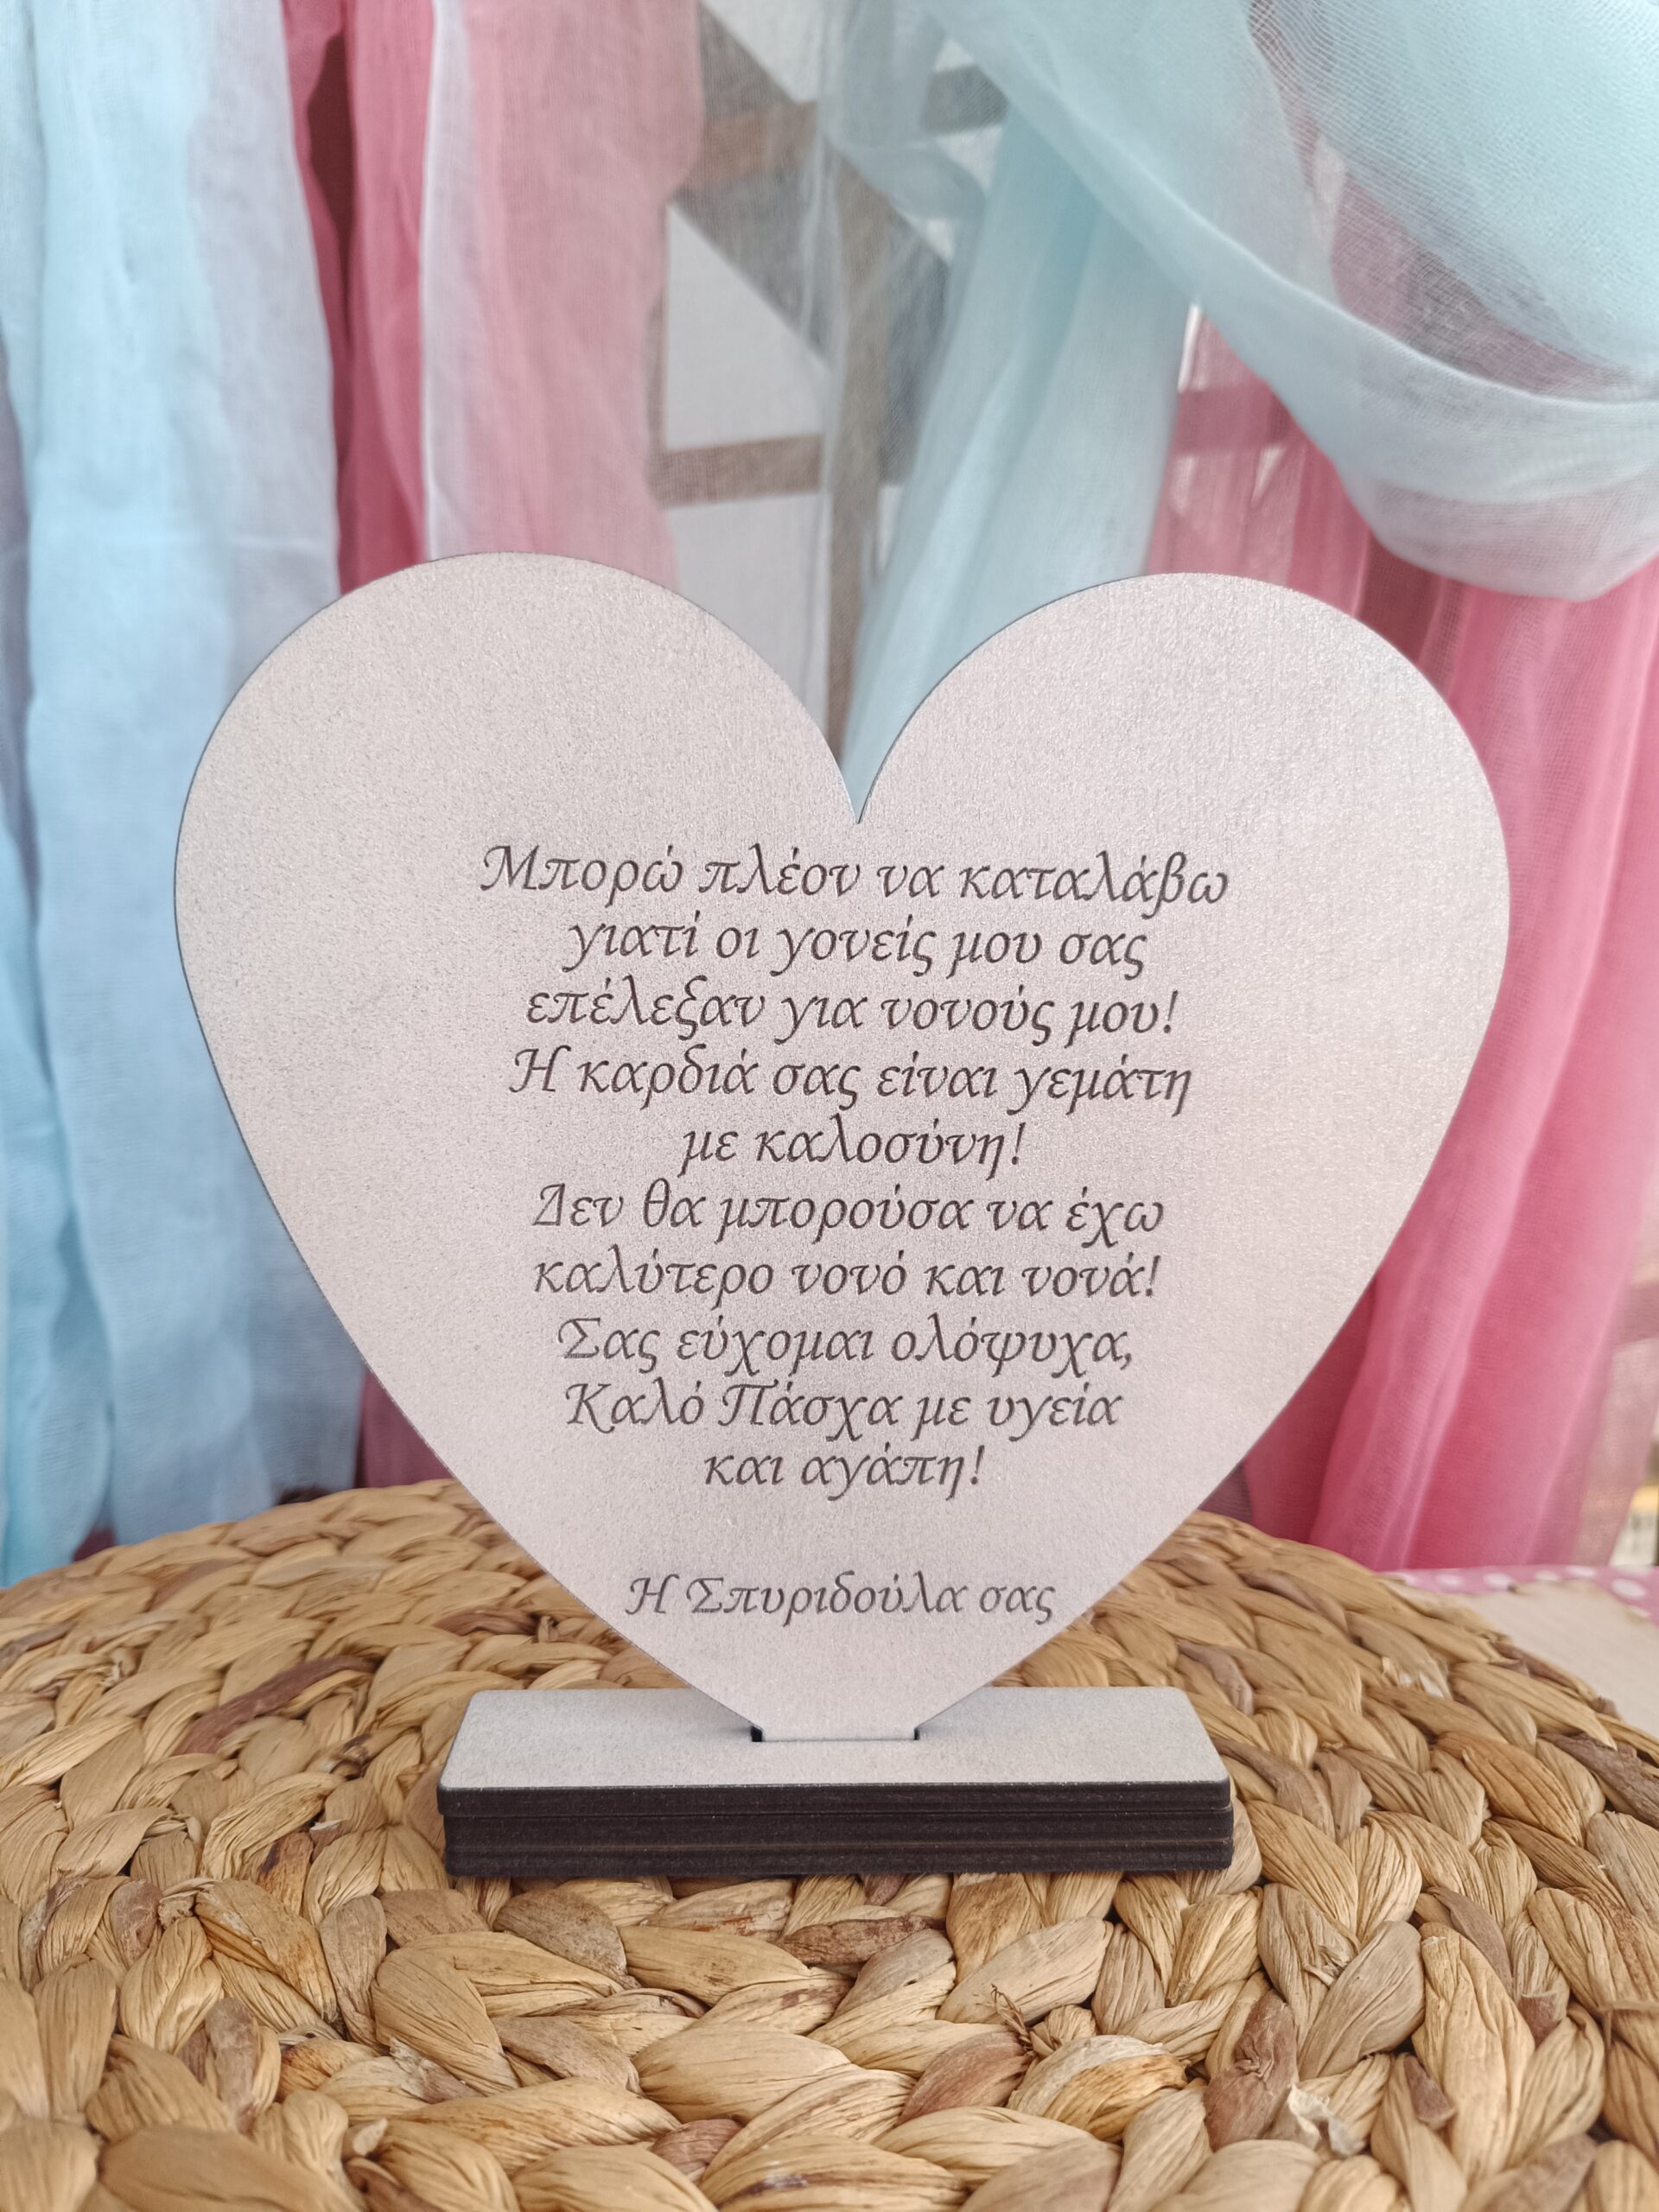 Μπορώ πλέον να καταλάβω
γιατί οι γονείς μου σας
επέλεξαν για νονούς μου!
Η καρδιά σας είναι γεμάτη
με καλοσύνη!
Δεν θα μπορούσα να έχω
καλύτερο νονό και νονά!
Σας εύχομαι ολόψυχα,
Καλό Πάσχα με υγεία
και αγάπη!
Η Σπυριδούλα σας